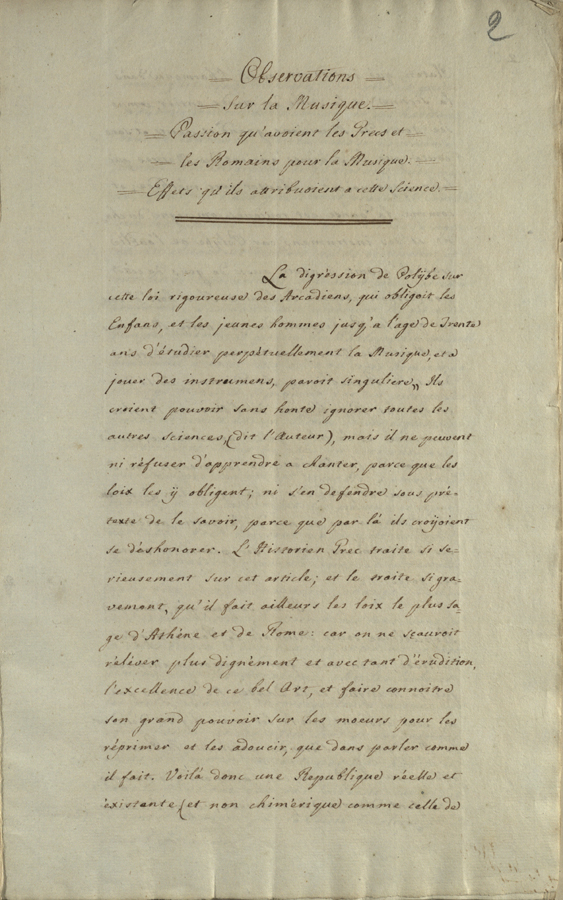 2
Observations
sur la Musique.
Passion qu'avoient les Grecs et
les Romains pour la Musique.
Effets qu'ils attribuoient a cette Science.
La digression de Polÿbe sur
cette loi rigoureuse des Arcadiens, qui obligoit les
Enfans, et les jeunes hommes jusq'a l'age de Trente
ans d'étudier perpétuellement la Musique, et a
jouer des instrumens, paroit singuliere„ Ils
croient pouvoir sans honte ignorer toutes les
autres sciences, (dit l'Auteur), mais il ne peuvent
ni réfuser d'apprendre a Chanter, parce que les
loix les ÿ obligent; ni s'en defendre sous pré-
texte de le savoir, parce que par là ils croÿoient
se déshonorer. L'Historien Grec traite si se-
rieusement sur cet article; et le traite si gra-
vement, qu'il fait ailleurs les loix le plus sa-
ge d'Athéne et de Rome: car on ne sçauroit
réléver plus dignément et avec tant d'érudition,
l'excellence de ce bél Art, et faire connoitre
son grand pouvoir sur les moeurs pour les
réprimer et les adoucir, que dans parler comme
il fait. Voilà donc une Republique réelle et
éxistante (et non chimérique comme celle de